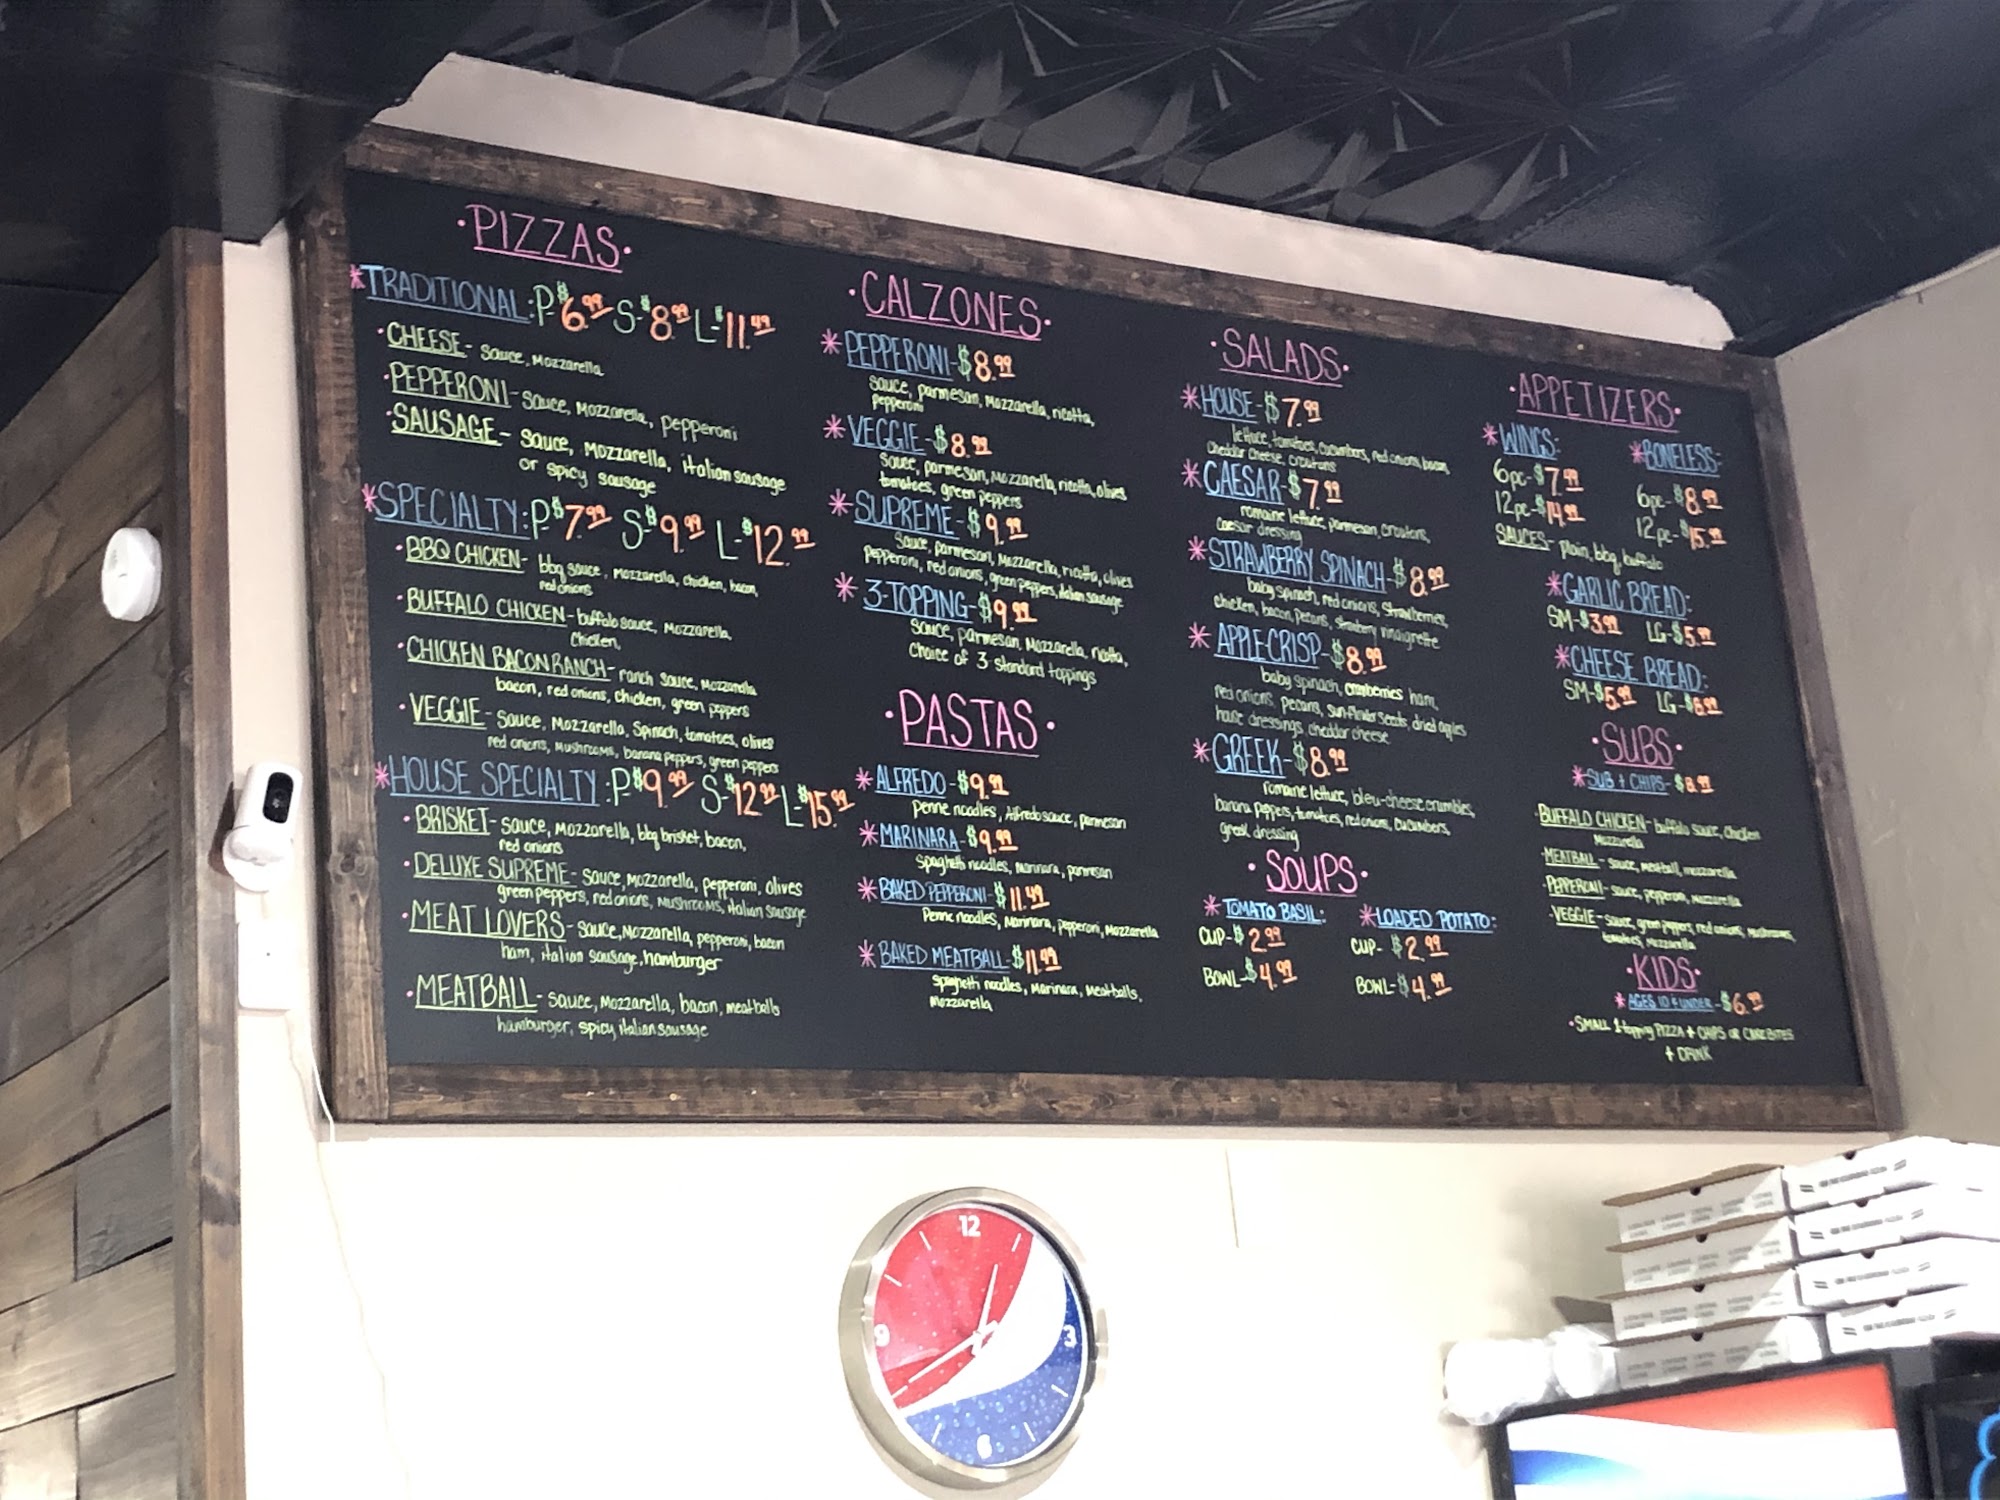 ·PIZZAS·
*TRADITIONAL: P-$6.99 S-$8.99 L-$11.49
·CHEESE- Sauce, Mozzarella
·PEPPERONI- Sauce, Mozzarella, pepperoni
·SAUSAGE- Sauce, Mozzarella, italian sausage
or spicy sausage
*SPECIALTY: P-$7.99 S-$9.99 L-$12.99
·BBQ CHICKEN- bbq sauce, Mozzarella, chicken, bacon,
red onions
·BUFFALO CHICKEN- buffalo sauce, Mozzarella,
Chicken,
·CHICKEN BACON RANCH- ranch sauce, Mozzarella
bacon, red onions, chicken, green peppers
·VEGGIE- Sauce, Mozzarella, Spinach, tomatoes, olives
red onions, Mushrooms, banana peppers, green peppers
*HOUSE SPECIALTY: P-$9.99 S-$12.99 L-$15.99
·BRISKET- Sauce, Mozzarella, bbq brisket, bacon,
red onions
·DELUXE SUPREME- Sauce, Mozzarella, pepperoni, olives
green peppers, red onions, Mushrooms, italian sausage
·MEAT LOVERS- Sauce, Mozzarella, pepperoni, bacon
ham, italian sausage, hamburger
·MEATBALL- Sauce, Mozzarella, bacon, meatballs
hamburger, spicy italian sausage
·CALZONES·
*PEPPERONI-$8.99
Sauce, parmesan, Mozzarella, ricotta,
pepperoni
*VEGGIE-$8.99
Sauce, parmesan, Mozzarella, ricotta, olives
tomatoes, green peppers
*SUPREME-$9.99
Sauce, parmesan, Mozzarella, ricotta, olives
pepperoni, red onions, green peppers, italian sausage
*3-TOPPING-$9.99
Sauce, parmesan, Mozzarella, ricotta,
Choice of 3 standard toppings
·PASTAS·
*ALFREDO-$9.99
penne noodles, Alfredo sauce, parmesan
*MARINARA-$9.99
Spaghetti noodles, marinara, parmesan
*BAKED PEPPERONI-$11.49
Penne noodles, Marinara, pepperoni, Mozzarella
*BAKED MEATBALL-$11.49
Spaghetti noodles, Marinara, Meatballs,
Mozzarella
·SALADS·
*HOUSE-$7.99
lettuce, tomatoes, cucumbers, red onions, bacon,
cheddar cheese, croutons
*CAESAR-$7.99
romaine lettuce, parmesan, croutons,
caesar dressing
*STRAWBERRY SPINACH-$8.99
baby spinach, red onions, strawberries,
chicken, bacon, pecans, strawberry vinaigrette
*APPLE-CRISP-$8.99
baby spinach, cranberries ham,
red onions, pecans, sunflower seeds, dried apples
house dressings, cheddar cheese
*GREEK-$8.99
romaine lettuce, bleu-cheese crumbles,
banana peppers, tomatoes, red onions, cucumbers,
greek dressing
·SOUPS·
*TOMATO BASIL: *LOADED POTATO:
CUP-$2.99 CUP-$2.99
BOWL-$4.99 BOWL-$4.99
·APPETIZERS·
*WINGS: *BONELESS:
6pc-$7.99 6pc-$8.99
12pc-$14.99 12pc-$15.99
SAUCES- plain, bbq, buffalo
*GARLIC BREAD:
SM-$3.99 LG-$5.99
*CHEESE BREAD:
SM-$5.99 LG-$8.99
·SUBS·
*SUB + CHIPS-$8.99
·BUFFALO CHICKEN- buffalo sauce, chicken
Mozzarella
·MEATBALL- sauce, meatball, mozzarella
·PEPPERONI- sauce, pepperoni, mozzarella
·VEGGIE- sauce, green peppers, red onions, mushrooms,
tomatoes, mozzarella
·KIDS·
*AGES 10 & UNDER-$6.99
·SMALL 1-topping PIZZA + CHIPS OR CAKE BITES
+ DRINK
12
9 3
6